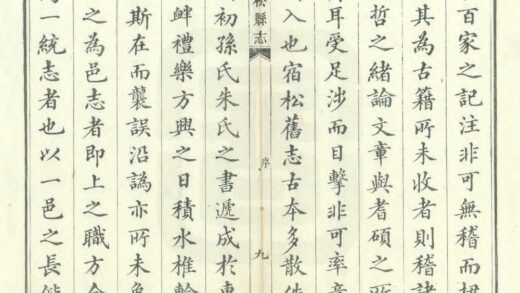 百家之記注非可無稽而
其為古籍所未收者則稽諸
哲之緒論文章與耆碩之所
耳受足涉而目擊非可率意
入也宿松舊志古本多散佚
松縣志 序 九
初孫氏朱氏之書遞成於
衅禮樂方興之日積水椎輪
斯在而襲誤沿譌亦所未免
之為邑志者即上之職方
一統志者也以一邑之長